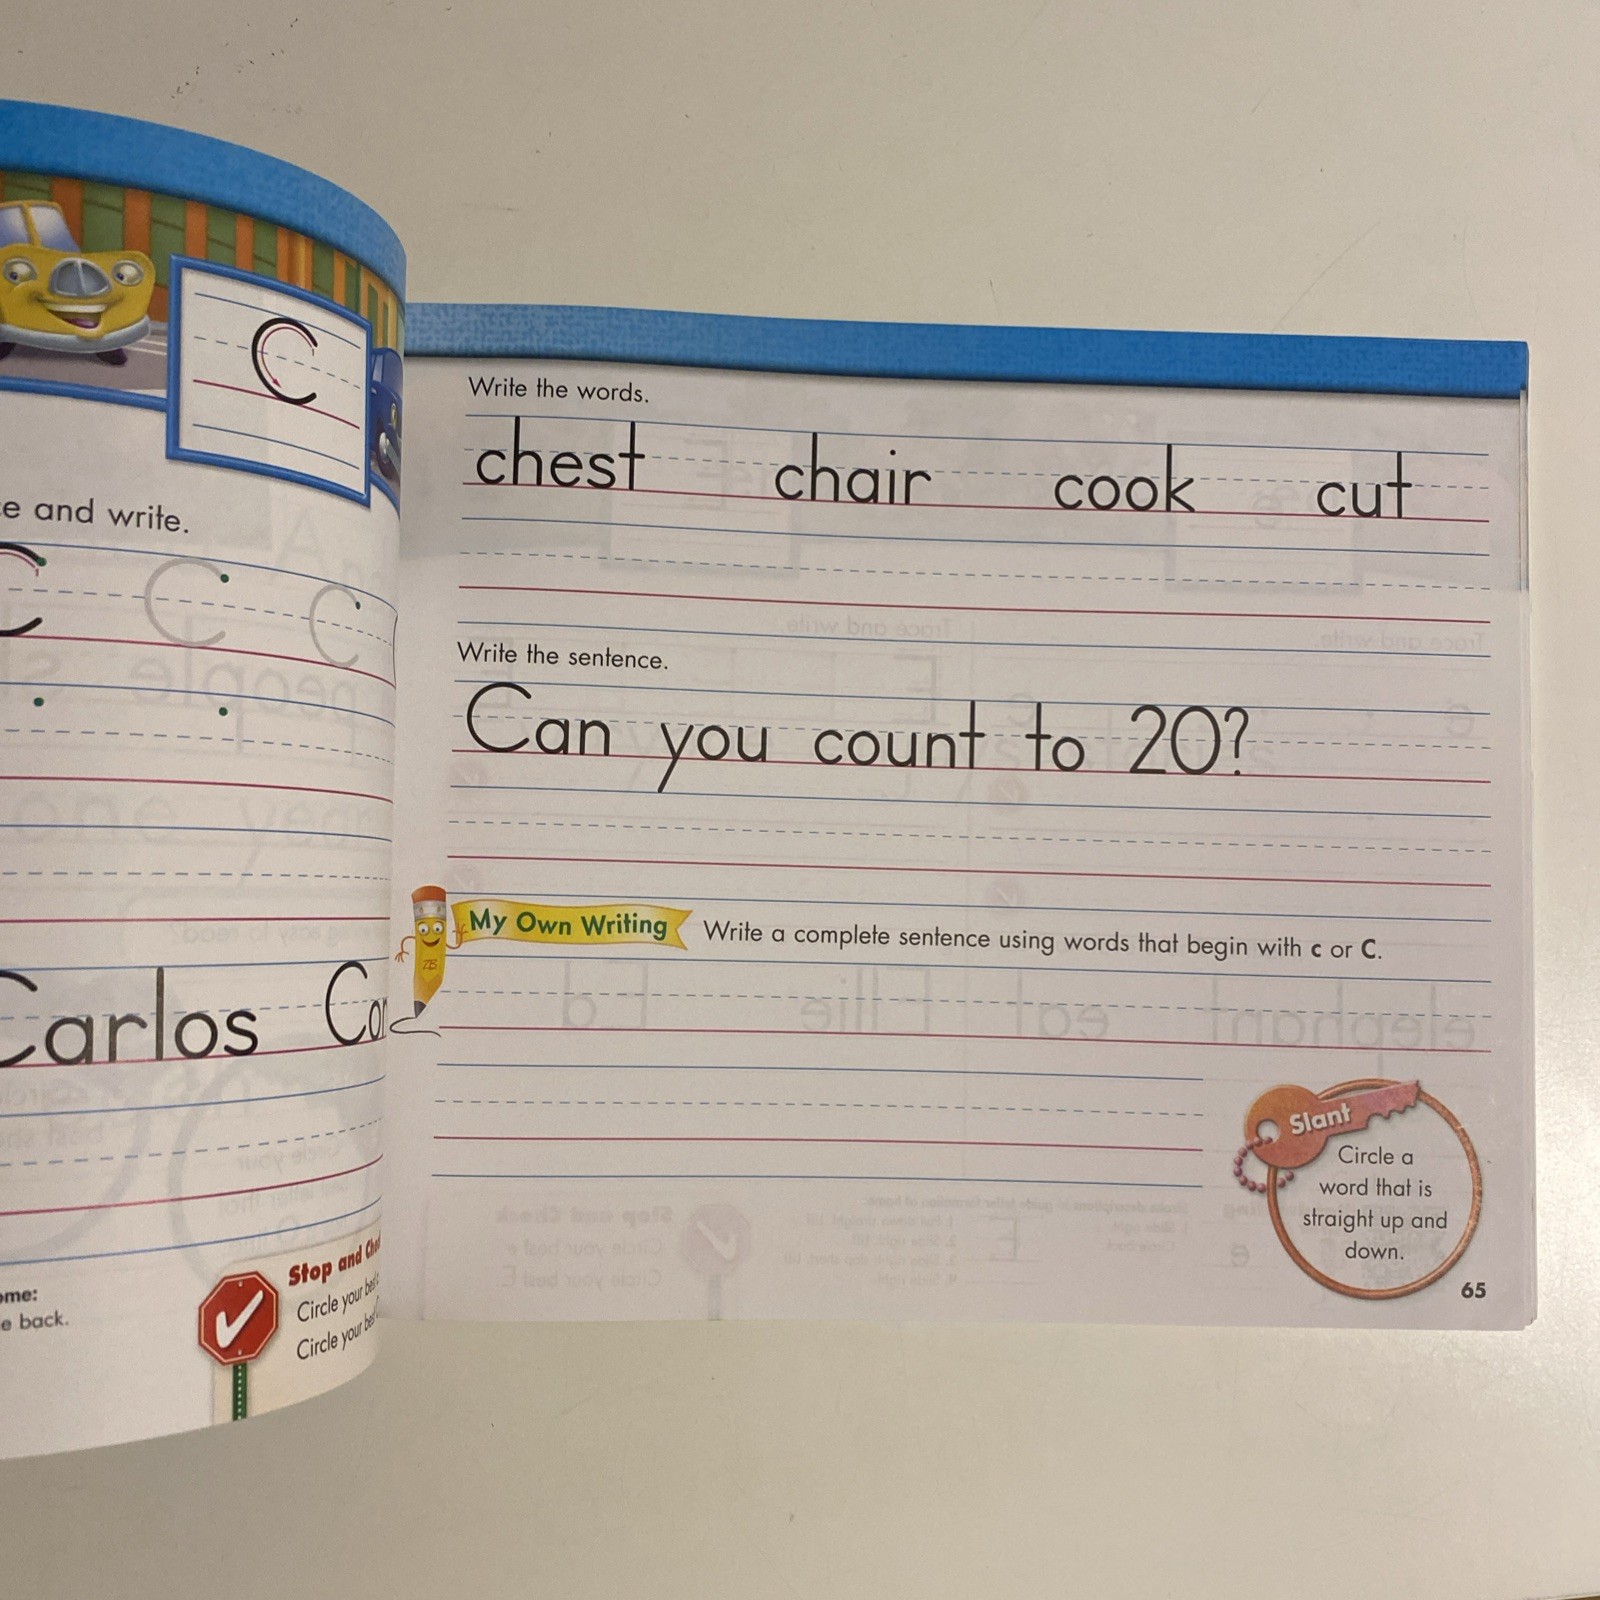 C
e and write.
C C C
Carlos
ome:
e back.
Stop and
Circle your best
Circle your best
Write the words.
chest chair cook cut
Write the sentence.
Can you count to 20?
ZB
My Own Writing Write a complete sentence using words that begin with c or C.
Slant
Circle a
word that is
straight up and
down.
65